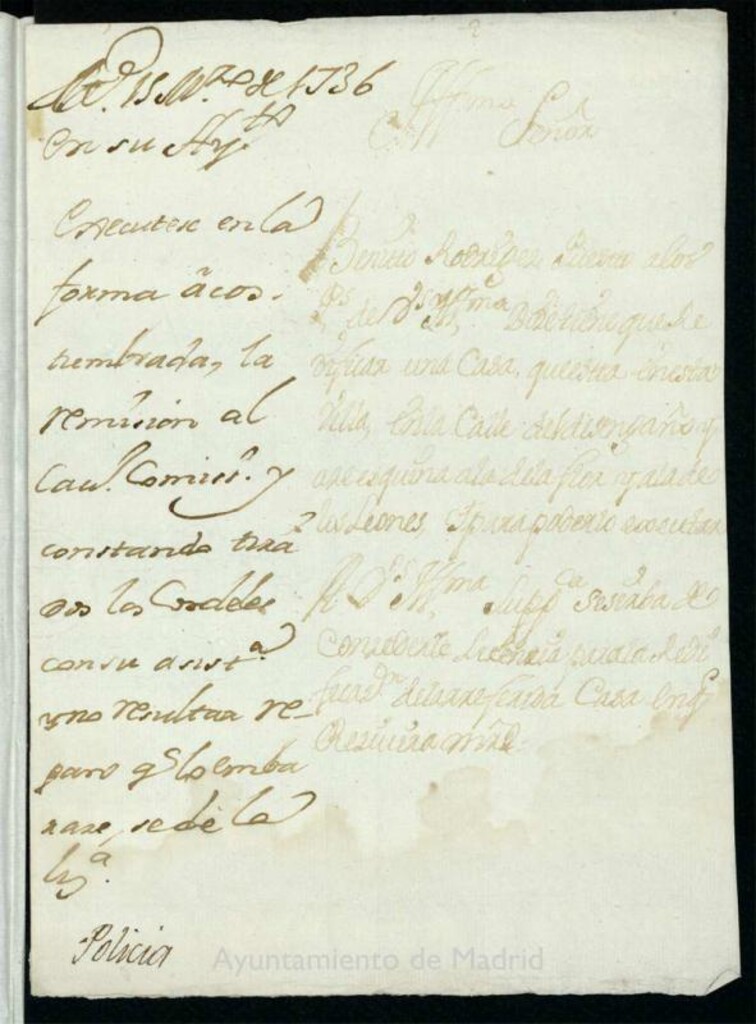 M.d 15 Mzo de 1736
en su Aytto
Executese en la
forma acos-
tumbrada, la
remision al
Cavo. Comiso. y
constando tira
dos los Cordeles
con su asista.
y no resultar re-
paro qe lo emba
raze, se dé la
liza.
Policia
Illma
Señor
Benitto Rodriguez Puesto a los
ps de V.S. Illma Dize tiene que Re
dificar una Casa, que esta en esta
Villa, en la Calle del disengaño y
aze esquina a la de la flor y a la de
los Leones, y para poderlo executar
A V.S. Illma Suppca se sirba de
Conzederle Licencia para la Redi
ficazn de la referida Casa en q
Rezivira mrd.
Ayuntamiento de Madrid